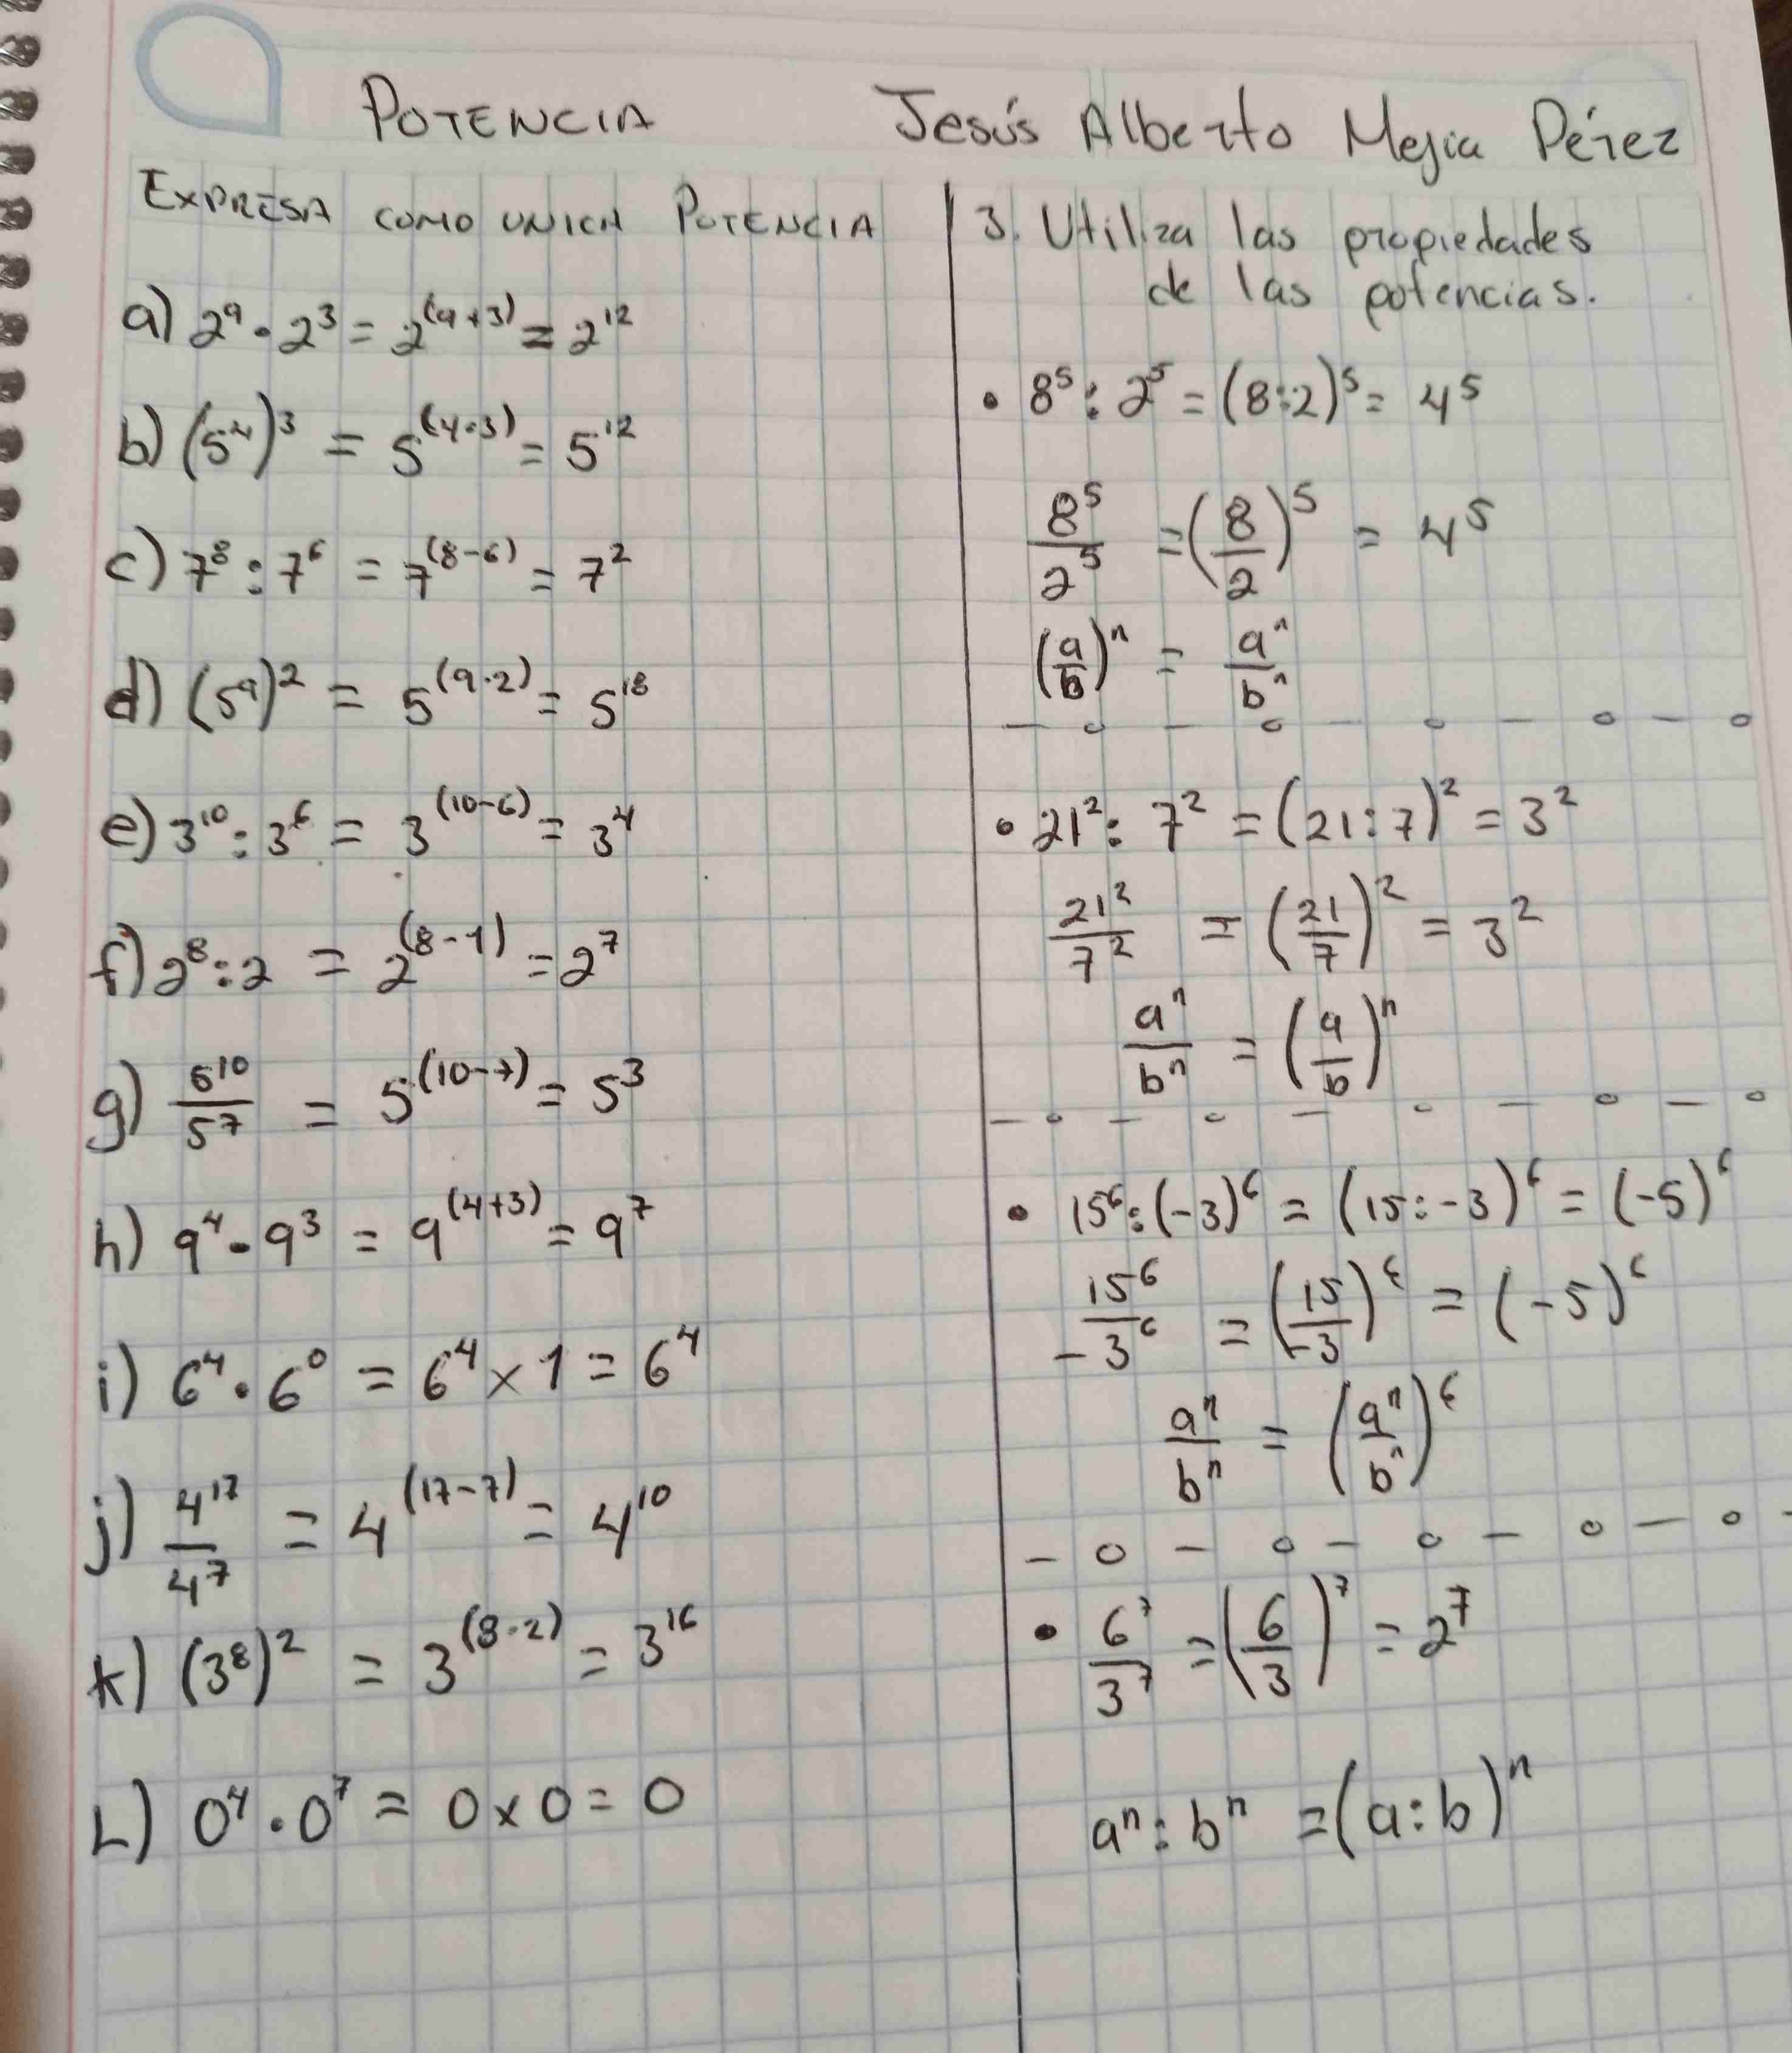 POTENCIA
Jesús Alberto Mejia Pérez
EXPRESA COMO UNICA POTENCIA
a) 2⁹ · 2³ = 2⁽⁹⁺³⁾ = 2¹²
b) (5⁴)³ = 5⁽⁴·³⁾ = 5¹²
c) 7⁸ : 7⁶ = 7⁽⁸⁻⁶⁾ = 7²
d) (5⁹)² = 5⁽⁹·²⁾ = 5¹⁸
e) 3¹⁰ : 3⁶ = 3⁽¹⁰⁻⁶⁾ = 3⁴
f) 2⁸ : 2 = 2⁽⁸⁻¹⁾ = 2⁷
g) 5¹⁰/5⁷ = 5⁽¹⁰⁻⁷⁾ = 5³
h) 9⁴ · 9³ = 9⁽⁴⁺³⁾ = 9⁷
i) 6⁴ · 6⁰ = 6⁴ × 1 = 6⁴
j) 4¹⁷/4⁷ = 4⁽¹⁷⁻⁷⁾ = 4¹⁰
k) (3⁸)² = 3⁽⁸·²⁾ = 3¹⁶
L) 0⁴ · 0⁷ = 0 × 0 = 0
3. Utiliza las propiedades
de las potencias.
• 8⁵ : 2⁵ = (8:2)⁵ = 4⁵
8⁵/2⁵ = (8/2)⁵ = 4⁵
(a/b)ⁿ = aⁿ/bⁿ
• 21² : 7² = (21:7)² = 3²
21²/7² = (21/7)² = 3²
aⁿ/bⁿ = (a/b)ⁿ
• 15⁶ : (-3)⁶ = (15:-3)⁶ = (-5)⁶
15⁶/-3⁶ = (15/-3)⁶ = (-5)⁶
aⁿ/bⁿ = (aⁿ/bⁿ)⁶
• 6⁷/3⁷ = (6/3)⁷ = 2⁷
aⁿ : bⁿ = (a:b)ⁿ